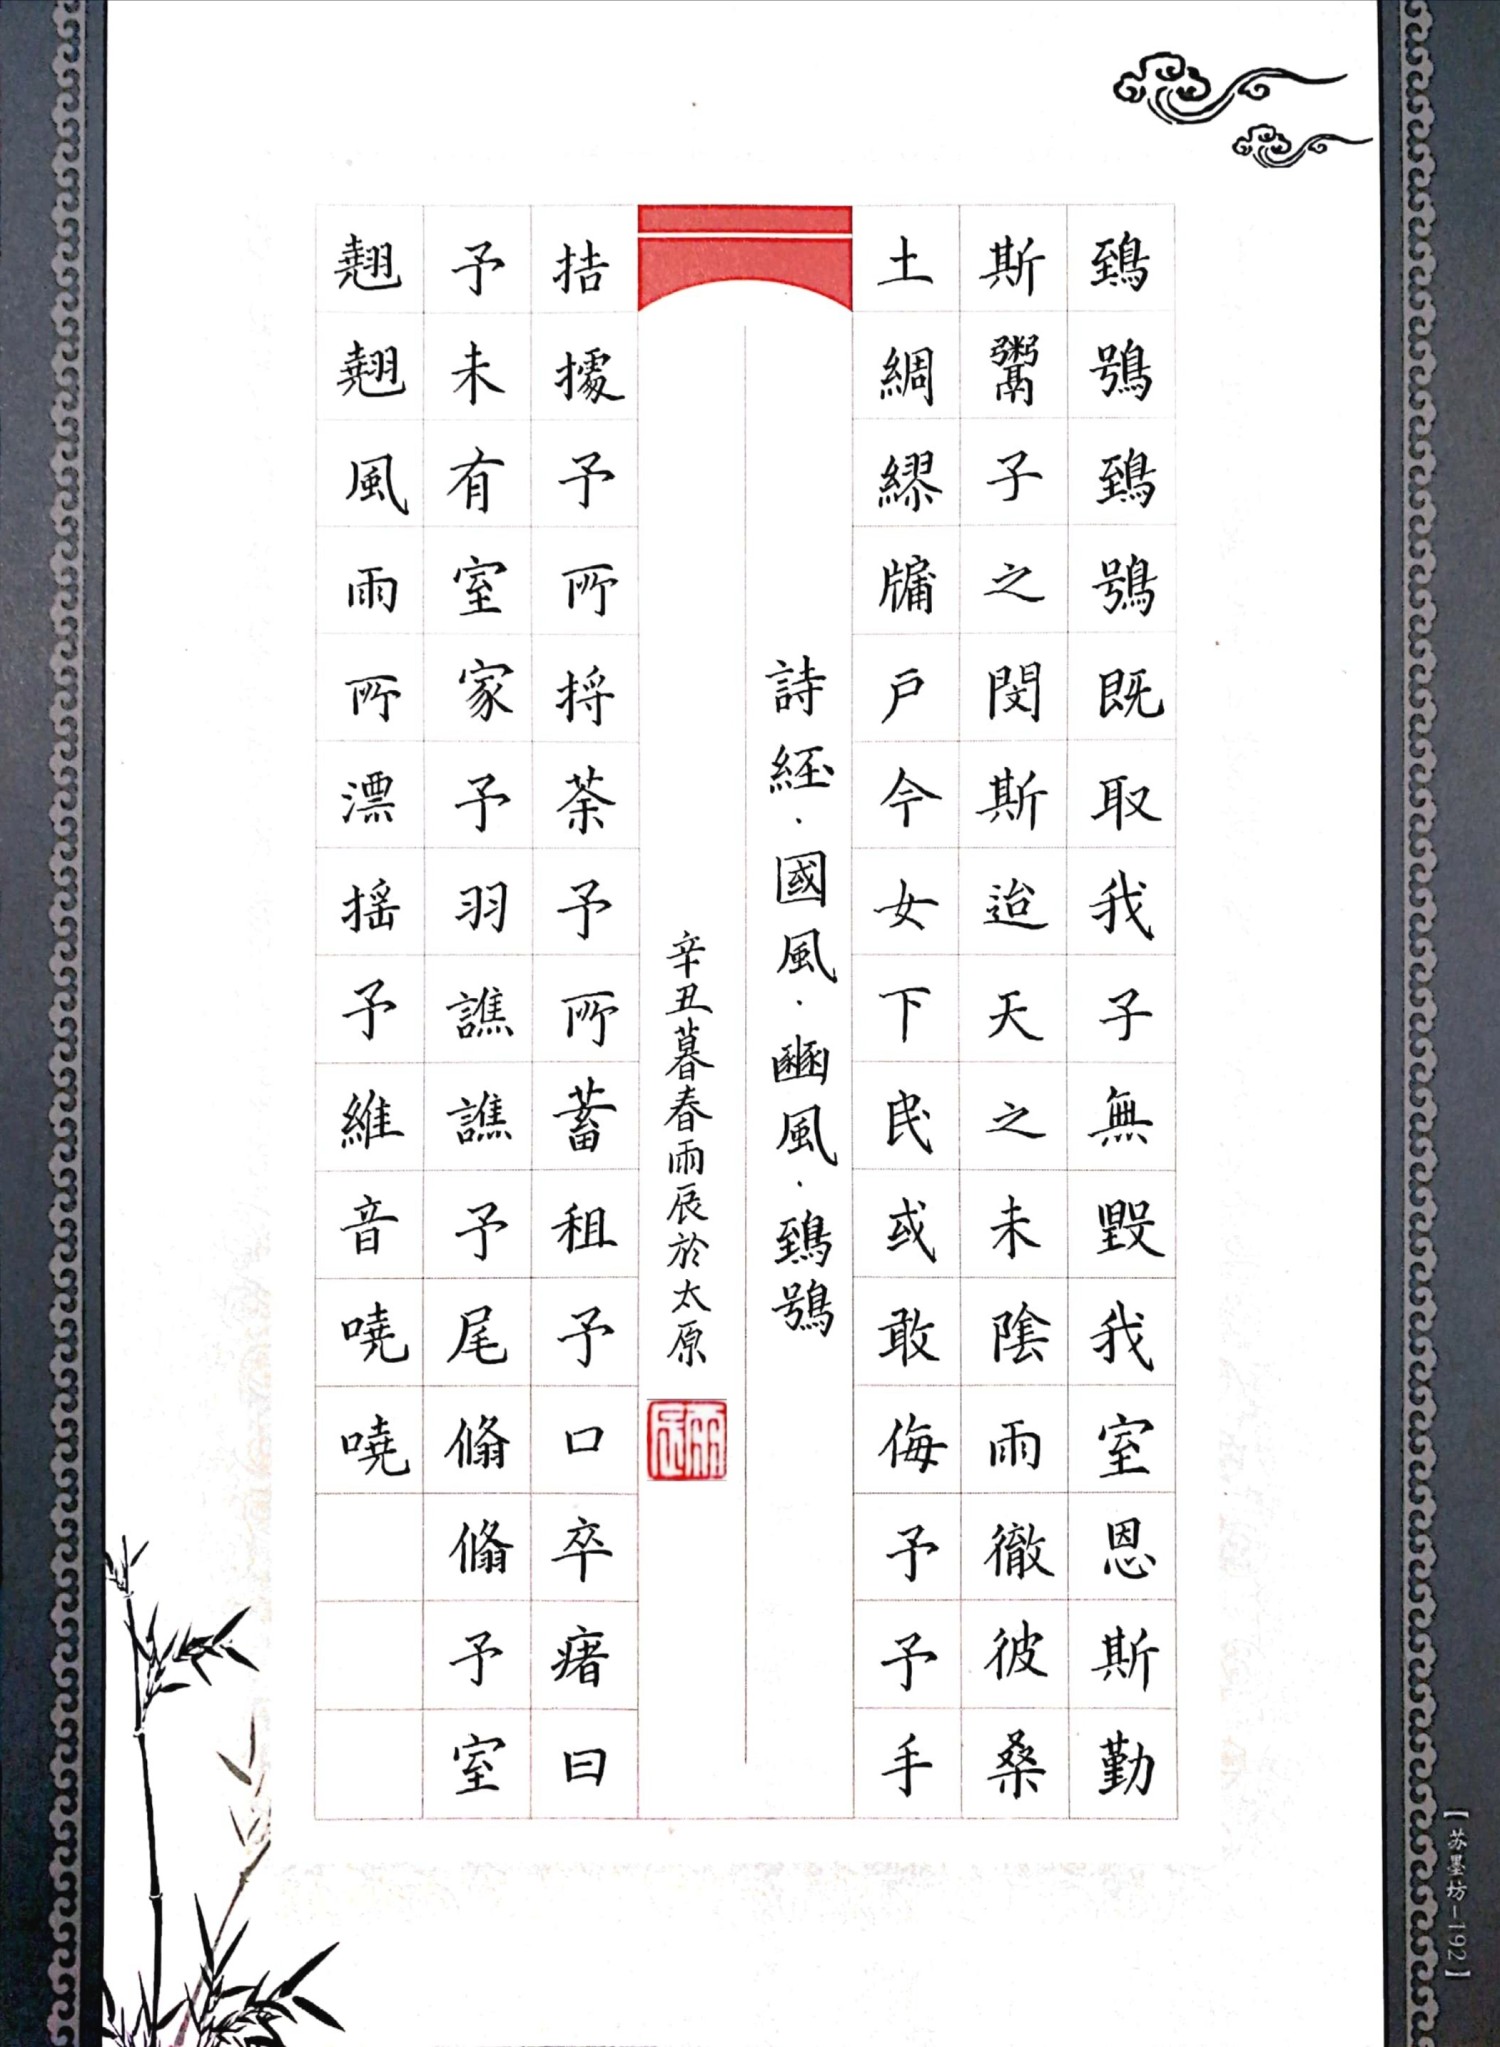 鴟鴞鴟鴞既取我子無毀我室恩斯勤
斯鬻子之閔斯迨天之未陰雨徹彼桑
土綢繆牖戶今女下民或敢侮予予手
詩經·國風·豳風·鴟鴞
辛丑暮春雨辰於太原
雨辰
拮據予所捋荼予所蓄租予口卒瘏曰
予未有室家予羽譙譙予尾翛翛予室
翹翹風雨所漂搖予維音嘵嘵
【苏墨坊-192】